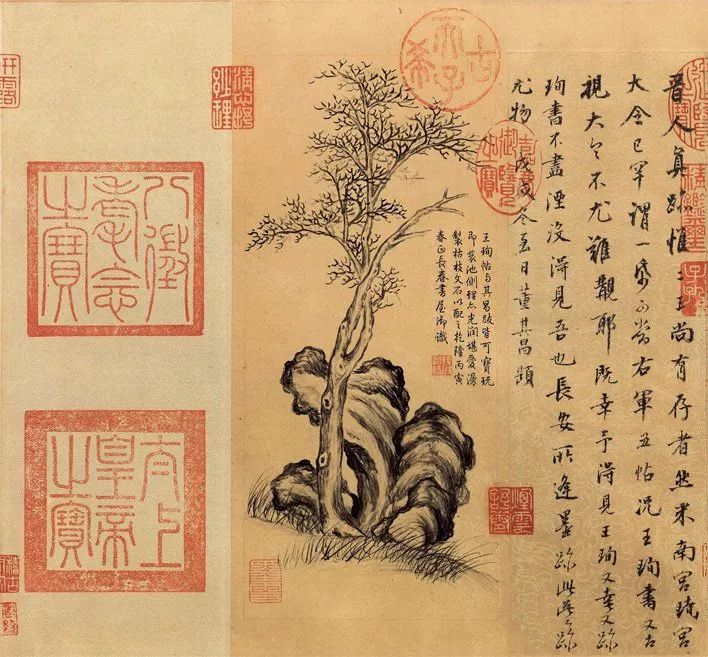 晉人真跡惟二王尚有存者然米南宮時
大令已罕謂一紙可當右軍五帖況王珣書
視大令不尤難覯耶既幸予得見王珣又幸
珣書不盡湮沒得見吾也長安所逢墨跡此為
尤物戊戌冬至日董其昌題
王珣帖與其昌跋皆可寶玩
即裝池側理亦光潤堪愛漫
製枯枝文石以配之乾隆丙寅
春正長春書屋御識
古稀天子
嘉慶御覽之寶
八徵耄念之寶
太上皇帝之寶